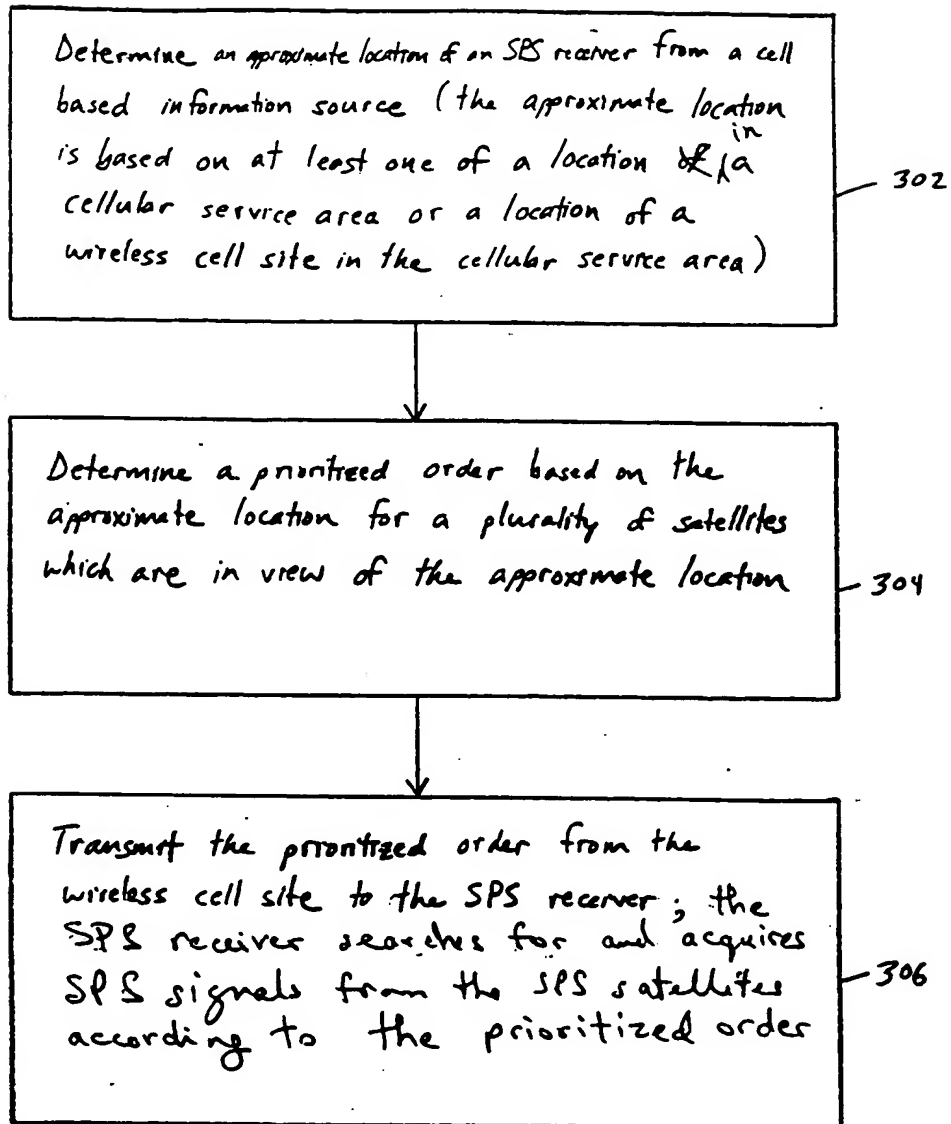 Determine an approximate location of an SPS receiver from a cell
based information source (the approximate location
is based on at least one of a location in a
cellular service area or a location of a
wireless cell site in the cellular service area)
302
Determine a prioritized order based on the
approximate location for a plurality of satellites
which are in view of the approximate location
304
Transmit the prioritized order from the
wireless cell site to the SPS receiver; the
SPS receiver searches for and acquires
SPS signals from the SPS satellites
according to the prioritized order
306